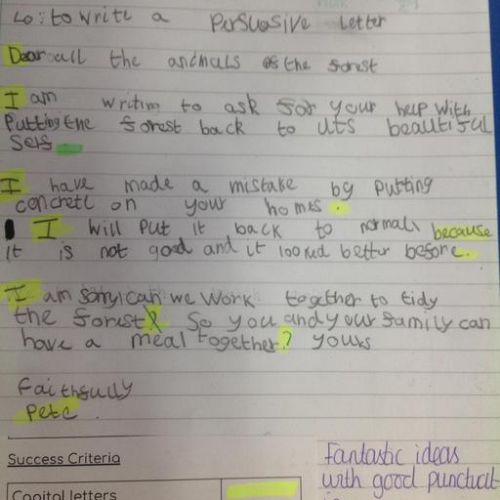 Lo: to write a persuasive letter
Dear all the animals of the forest
I am writing to ask for your help with
Putting the forest back to uts beautiful
self
I have made a mistake by putting
concrete on your homes.
I will put it back to normal because
it is not good and it looked better before.
I am sorry can we work together to tidy
the forest? So you and your family can
have a meal together? yours
faithfully
Pete.
Success Criteria
Capital letters
Fantastic ideas
with good punctuat